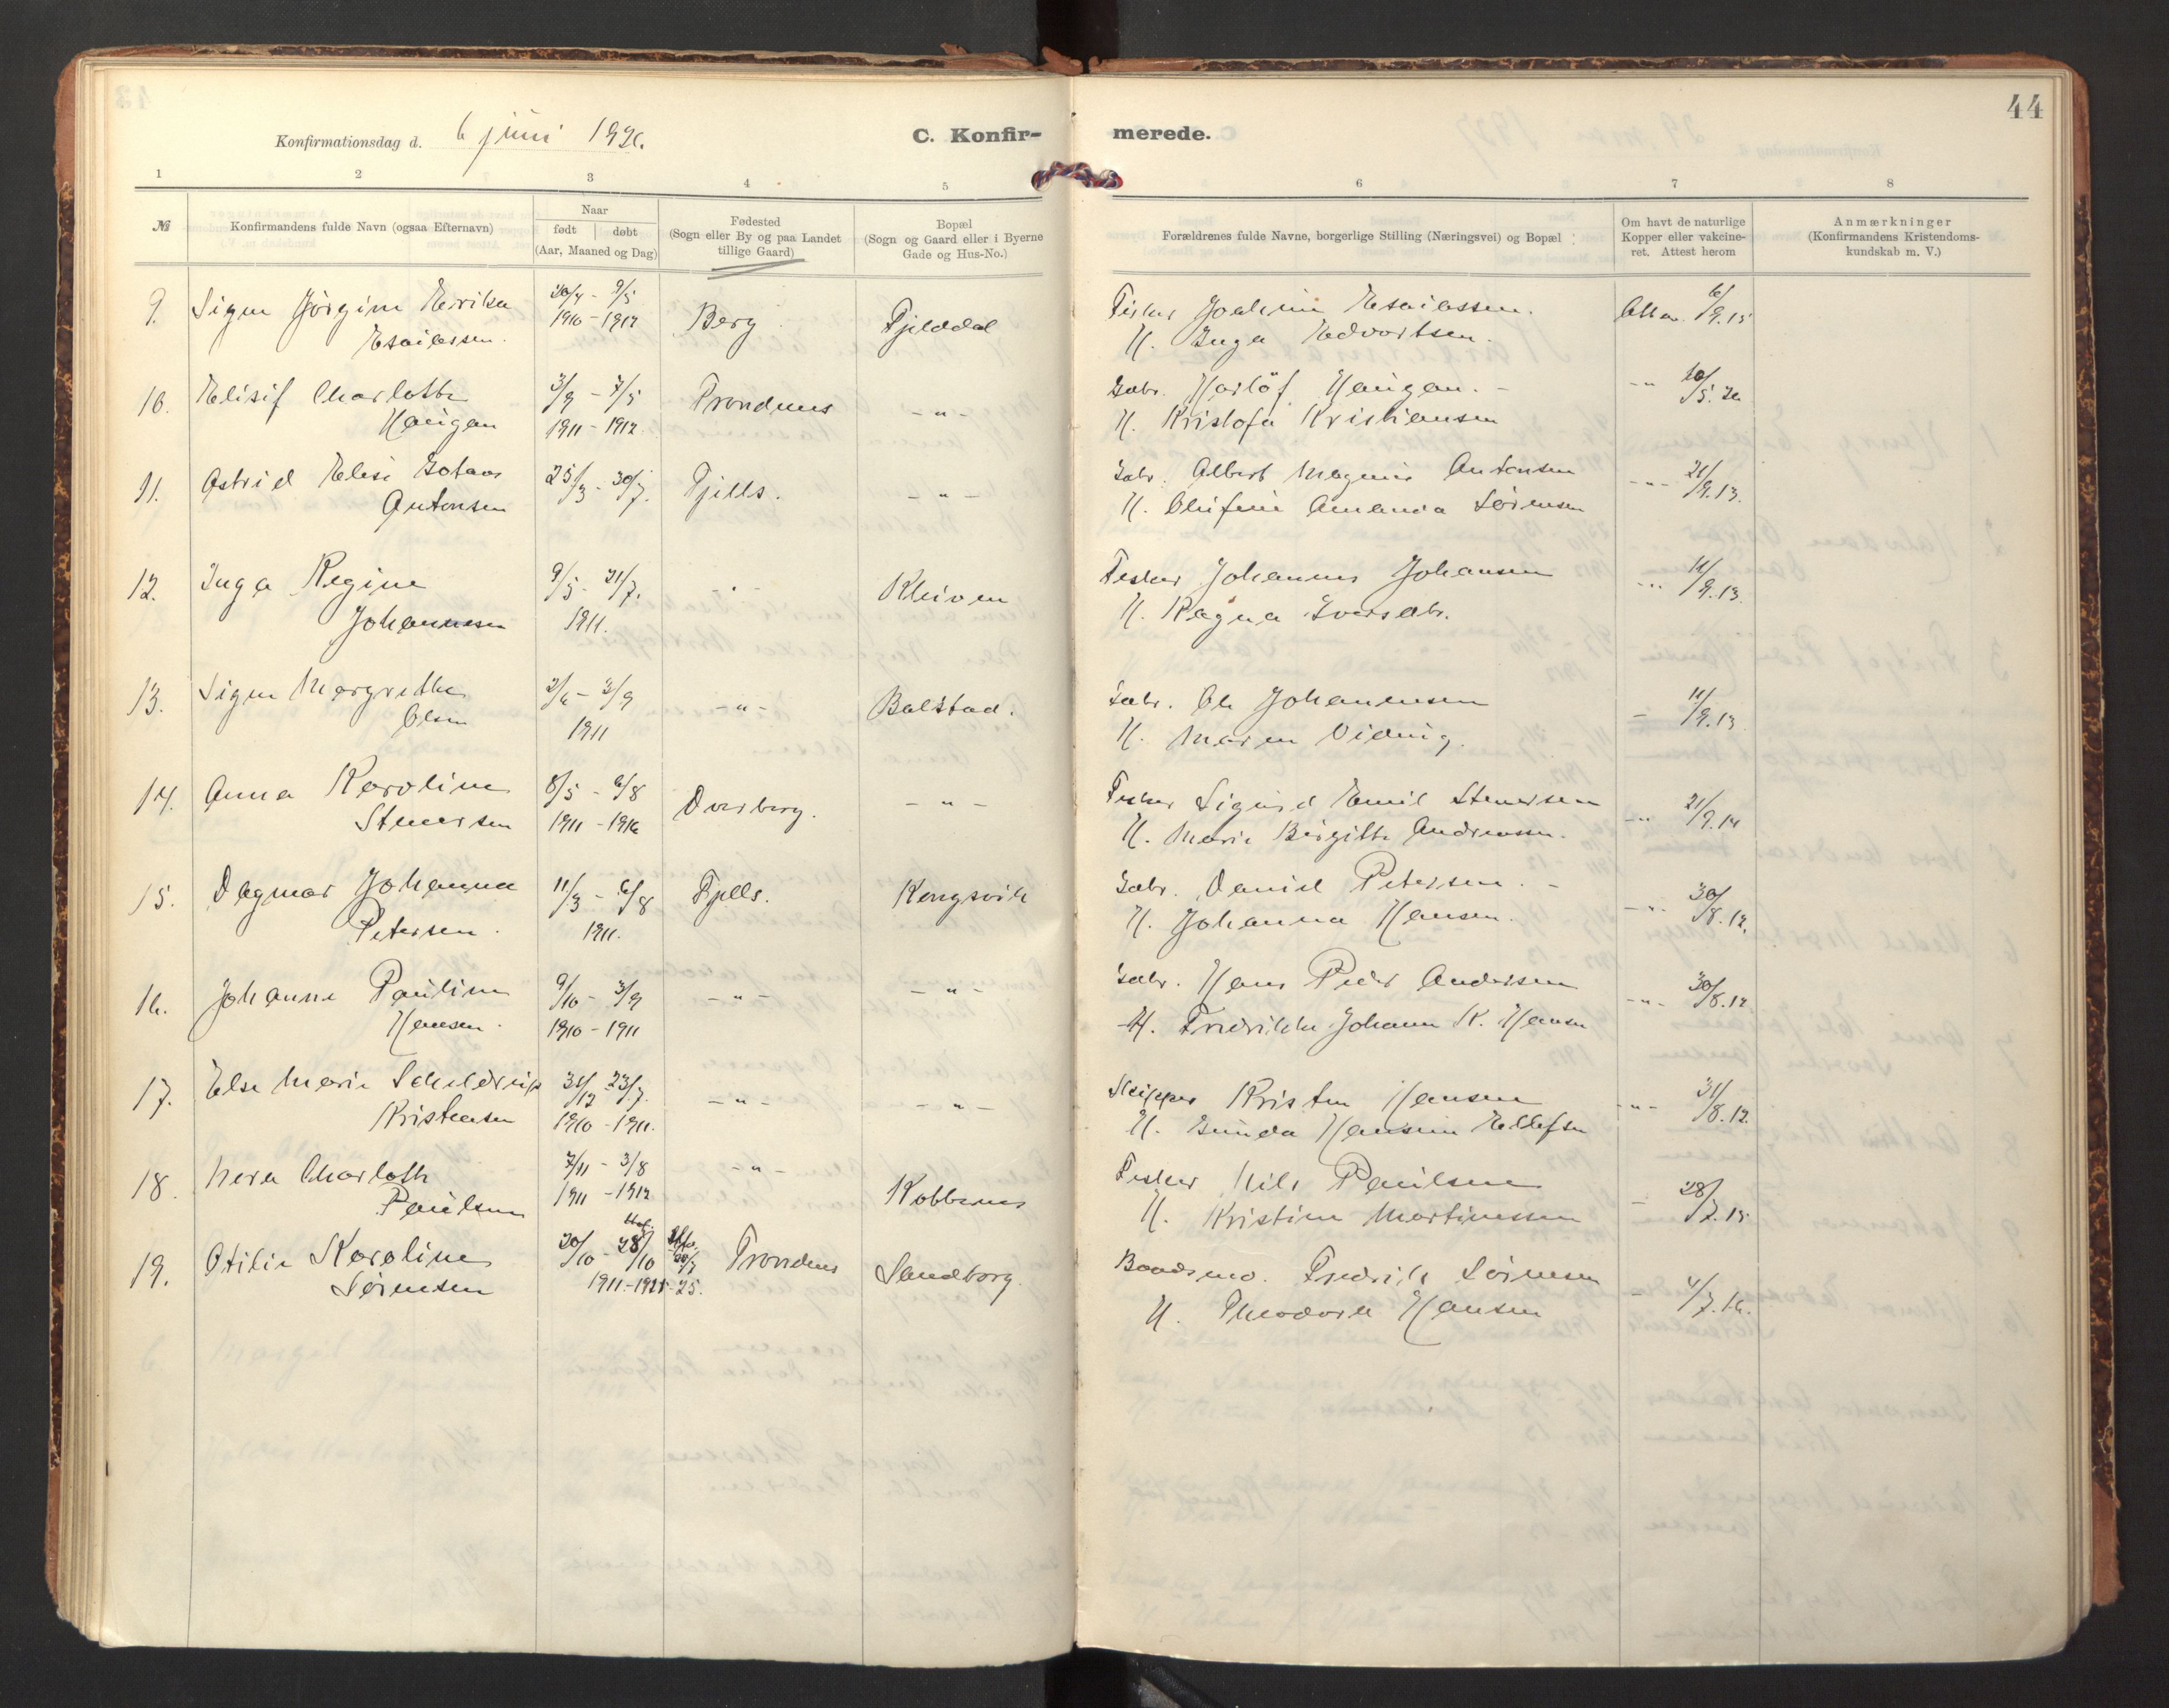 44
Konfirmationsdag d. 6 juni 1926.
C. Konfir-
merede.
1 2 3 4 5 6 7 8
№
Konfirmandens fulde Navn (ogsaa Efternavn)
Naar
født døbt
(Aar, Maaned og Dag)
Fødested
(Sogn eller By og paa Landet
tillige Gaard)
Bopæl
(Sogn og Gaard eller i Byerne
Gade og Hus-No.)
Forældrenes fulde Navne, borgerlige Stilling (Næringsvei) og Bopæl
Om havt de naturlige
Kopper eller vakcine-
ret. Attest herom
Anmærkninger
(Konfirmandens Kristendoms-
kundskab m. V.)
9. Signe Jørgine Erikka 30/4 - 9/5 Berg Fjelddal Fisker Joakim Esaiassen. 6/9.15
Esaiassen. 1910 - 1912 H. Inga Edvartsen.
10. Elisif Charlotte 3/9 - 7/5 Trondenes - " - Gabr. Harlöf Haugan. - " 20/5.20
Haugan 1911 - 1912. H. Kristofa Kristiansen
11. Astrid Elise Gotaas 25/3 - 30/7. Fjells. - " - Gabr. Albert Magnus Antonsen - " - 21/9.13.
Antonsen H. Olufine Amanda Sörensen
12. Inga Regine 9/5 - 21/7. - " - Kleiven Fisker Johannes Johansen - " - 11/9.13.
Johannesen 1911. H. Ragna Iversdtr.
13. Signe Margrethe 2/6 - 3/9 - " - Balstad. Gabr. Ole Johannesen - 11/9.13
Olsen 1911 H. Maren Viding.
14. Anna Karoline 8/5 - 6/8 Dverberg. - " - Fisker Sigurd Emil Stenersen - " 21/9.14
Stenersen 1911 - 1916 H. Marie Birgitte Andreassen.
15. Dagmar Johanna 11/3 - 6/8 Fjells. Kongsvik Gabr. Daniel Petersen. - - " - 30/8.12.
Petersen. 1911. H. Johanna Hansen.
16. Johanne Pauline 9/10 - 3/9 - " - - " - Gabr. Hans Peder Andersen - " - 30/8.12
Hansen. 1910 - 1911 H. Fredrikke Johanne K. Hansen
17. Else Marie Scheldrup 31/12 23/7. - " - - " - Skipper Kristen Hansen - " - 31/8.12.
Kristensen 1910 - 1911. H. Gunda Hansine Ellefsen
18. Nera Charloth 7/11 - 3/8 - " - Kobbenes Fisker Nils Paulsen - 28/7.15
Paulsen 1911 - 1912 H. Kristine Martinussen
19. Otilie Karoline 20/10 - 28/10 Trondenes Sandborg. Baadsmd. Fredrik Sörensen - 4/7.16.
Sörensen 1911. - 25. H. Theodora Hansen